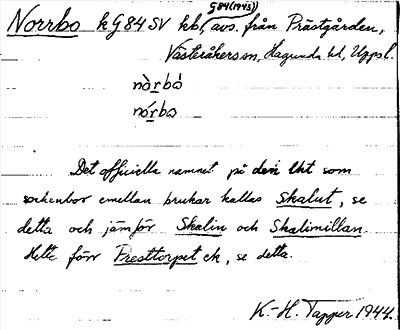 G84(1943)
Norrbo k G84 SV kbl, avs. från Prästgården,
Västeråkers sn, Hagunda hd, Uppsl.
nòrbó
nórbo
Det officiella namnet på den lht som
sockenbor emellan brukar kallas Skalut, se
detta och jämför Skalin och Skalimillan.
Hette förr Presttorpet ek, se detta.
K.-H. Tapper 1944.